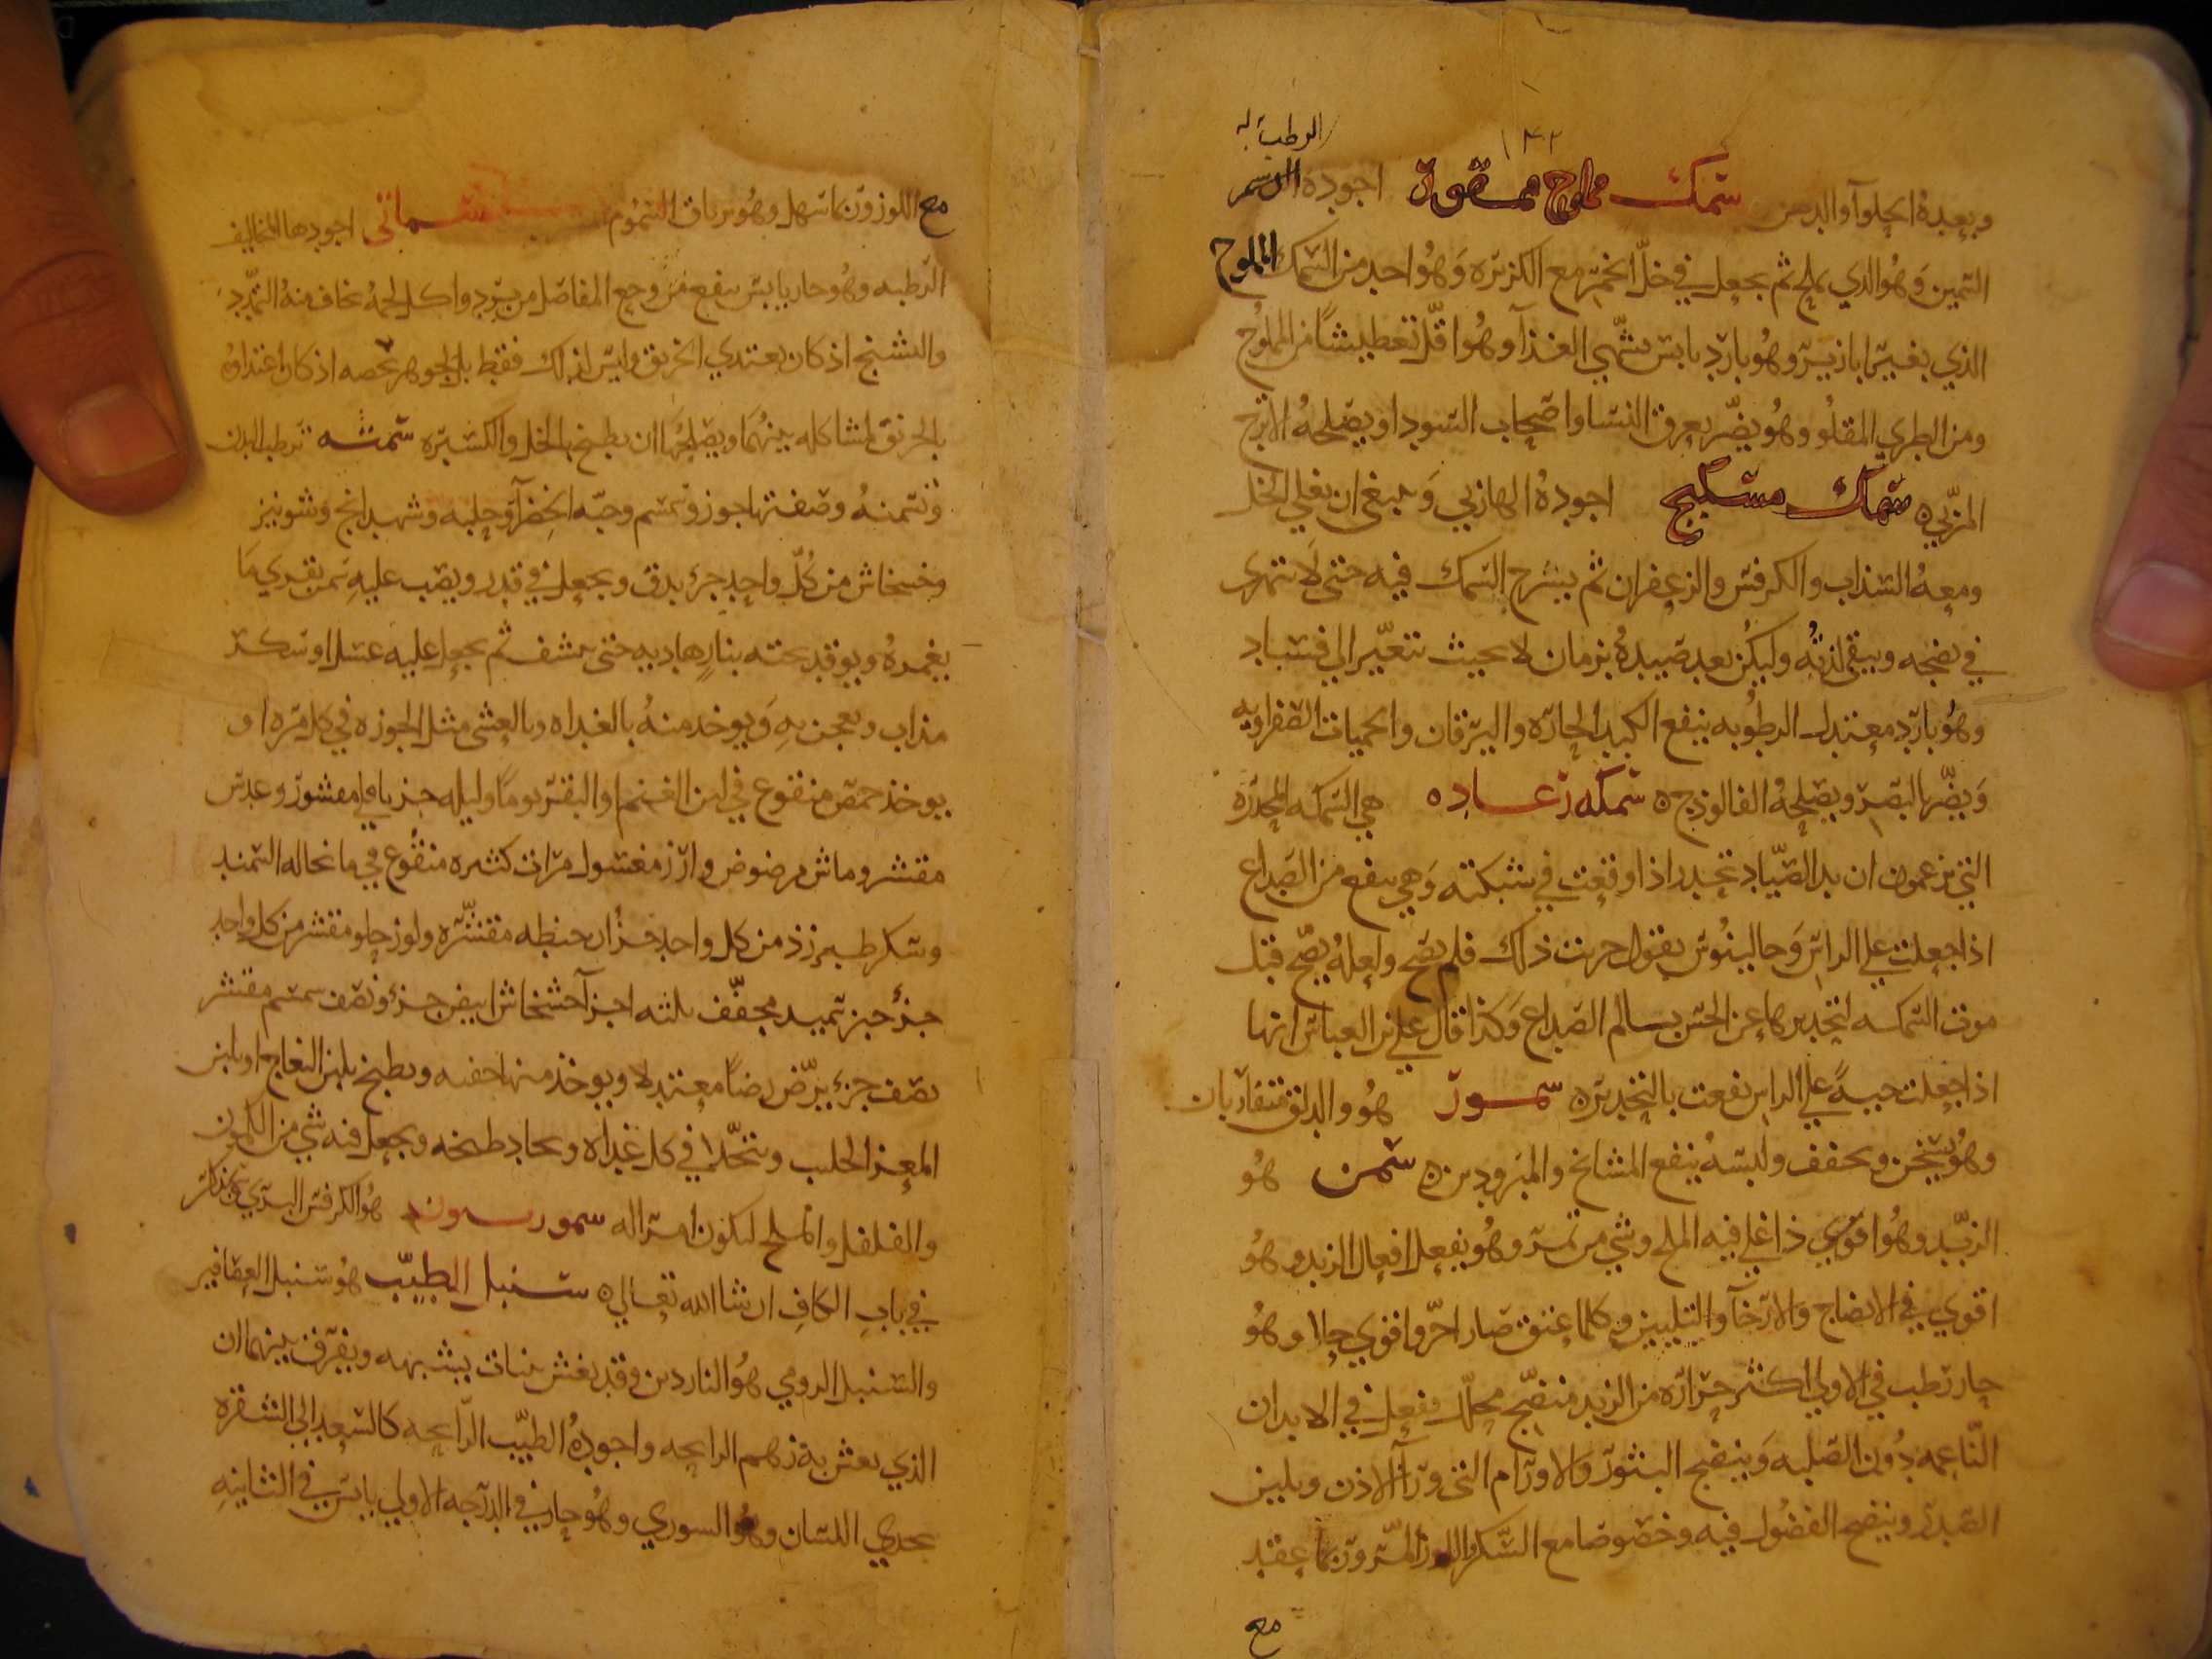 ١٤٢
الرطب
وبعده الحلوآ والدهن سمك مملوح ممقور اجوده
السمين وهو الذي يملح ثم يجعل في خل الخمر مع الكزبره وهو احد من السمك المملوح
الذي بغير ابازير وهو بارد يابس يشهي الغذآ وهو اقل تعطيشا من المملوح
ومن الطري المقلو وهو يضر بعرق النسا واصحاب السودا ويصلحه الاترج
المربي سمك مسكبج اجوده الهازبي وينبغي ان يغلي الخل
ومعه السذاب والكرفس والزعفران ثم يسرح السمك فيه حتى لا تتهرى
في نضجه ويبقى لذته وليكن بعد صيده بزمان لا بحيث تتغير الي فساد
وهو بارد معتدل الرطوبه ينفع الكبد الحاره واليرقان والحميات الصفراويه
ويضر بالبصر ويصلحه الفالوذج سمكه رعاده هي السمكه المخدره
التي يزعمون ان يد الصياد تخدر اذا وقعت في شبكته وهي ينفع من الصداع
اذا جعلت علي الراس وجالينوس يقول جربت ذلك فلم يصح ولعله يصح قبل
موت السمكه لتخديرها عن الحس بالم الصداع وكذا قال علي بن العباس انها
اذا جعلت حيةً علي الراس نفعت بالتخدير سمور هو والدلق متقاربان
وهو يسخن ويجفف ولبسه ينفع المشايخ والمبرودين سمن هو
الزبد وهو اقوي ذا غلي فيه الملح وشي من تمر وهو يفعل افعال الزبد وهو
اقوي في الانضاج والارخآ والتليين وكلما عتق صار احر واقوي جلا وهو
حار رطب في الاولي اكثر حراره من الزبد منضج محلل يفعل في الابدان
الناعمه دون الصلبه وينضج البثور والاورام التي ورآ الاذن ويلين
الصدر وينضج الفضول فيه وخصوصا مع السكر واللوز المر وربما عقد
مع
مع اللوز وربما سهل وهو ترياق السموم سماني اجودها المخاليف
الرطبه وهو حار يابس ينفع من وجع المفاصل من برد واكل لحمه يخاف منه التمدد
والتشنج اذ كان يغتدي الخربق وليس لذلك فقط بل لجوهر يخصه اذ كان اغتذاوه
بالخربق لمشاكله بينهما ويصلحها ان يطبخ بالخل والكسبره سمنه ترطب البدن
وتسمنه وصفتها جوز وسمسم وحبه الخضرآ وحلبه وشهدانج وشونيز
وخسخاش من كل واحد جزء يدق ويجعل في قدر ويصب عليه سمن بقدر ما
يغمره ويوقد تحته بنار هاديه حتى ينشف ثم يجعل عليه عسل او سكر
مذاب ويعجن به ويوخد منه بالغداه وبالعشي مثل الجوزه في كل مره او
يوخذ حمص منقوع في لبن الغنم او البقر يوما وليله جز باقلي مقشور وعدس
مقشر وماش مرضوض وارز مغسول مرات كثيره منقوع في ما نخاله السميد
وسكر طبرزذ من كل واحد جزان حنطه مقشره ولوز حلو مقشر من كل واحد
جزء خبز سميد مجفف ثلثه اجزآ خشخاش ابيض جزء ونصف سمسم مقشر
نصف جزء يرض رضا معتدلا ويوخذ منها حفنه ويطبخ بلبن النعاج او بلبن
المعز الحليب ويتحسا في كل غداه ويجاد طبخه ويجعل فيه شي من الكمون
والفلفل والملح ليكون امرا له سمورسون هو الكرفس البري
في باب الكاف ان شا الله تعالي سنبل الطيب هو سنبل العصافير
والسنبل الرومي هو الناردين وقد يغش بنبات يشبهه ويفرق بينهما ان
الذي يغش به زهم الرايحه واجوده الطيب الرايحه كالسعد الي الشقره
يحدي اللسان وهو السوري وهو حار في الدرجه الاولي يابس في الثانيه